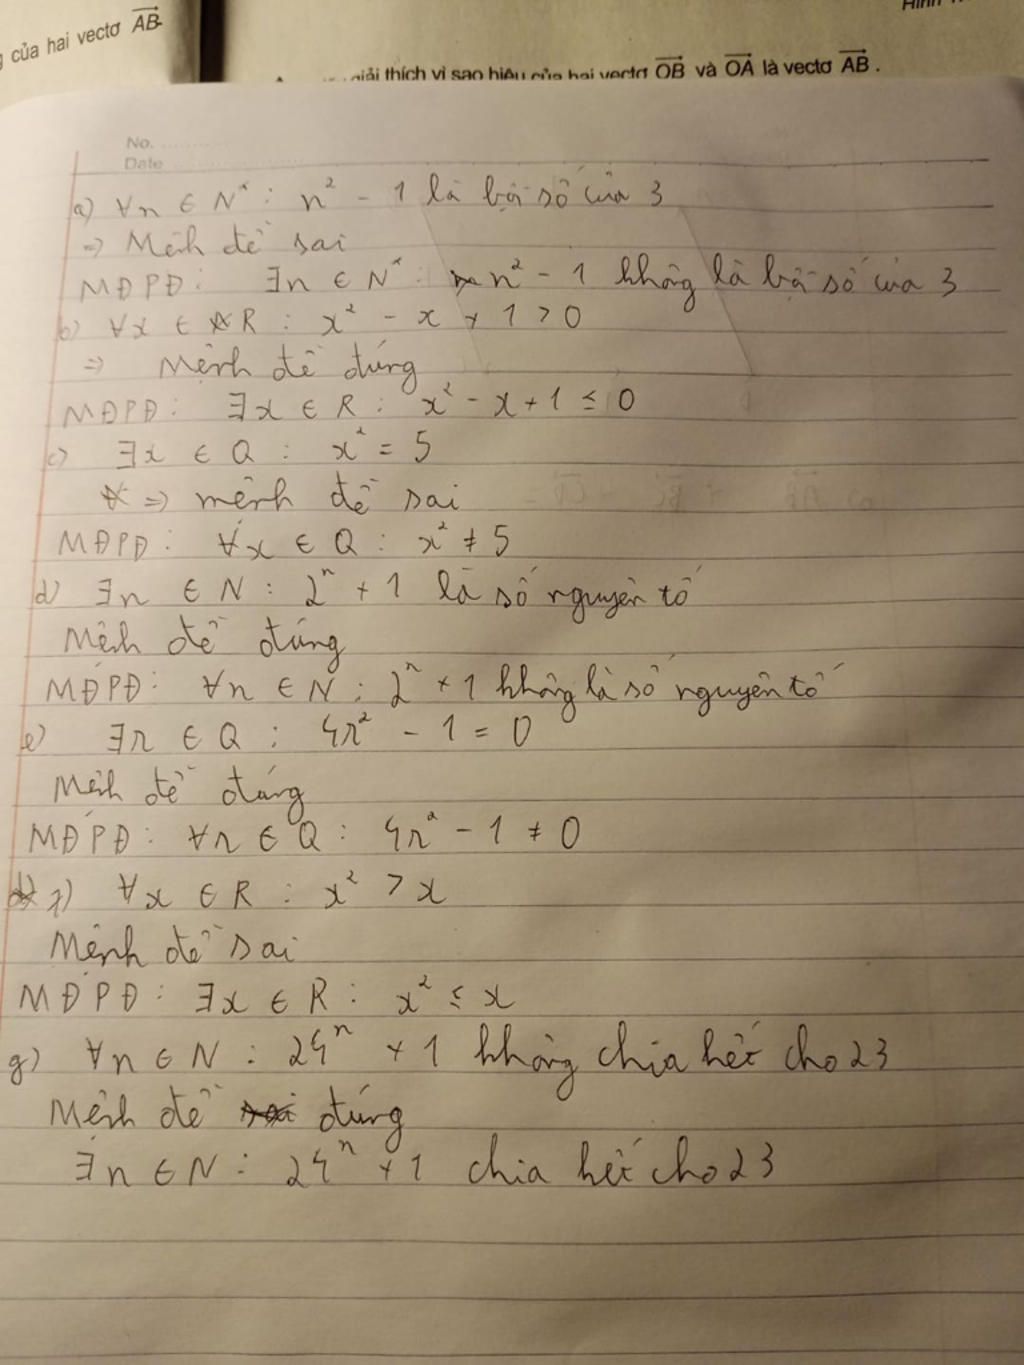 của hai vectơ AB
giải thích vì sao hiệu của hai vectơ OB và OA là vectơ AB.
No.
Date
a) ∀n ∈ N* : n² - 1 là bội số của 3
=> Mệnh đề sai
MĐPĐ: ∃n ∈ N* : n² - 1 không là bội số của 3
b) ∀x ∈ R : x² - x + 1 > 0
=> Mệnh đề đúng
MĐPĐ: ∃x ∈ R : x² - x + 1 ≤ 0
c) ∃x ∈ Q : x² = 5
=> mệnh đề sai
MĐPĐ: ∀x ∈ Q : x² ≠ 5
d) ∃n ∈ N : 2ⁿ + 1 là số nguyên tố
Mệnh đề đúng
MĐPĐ: ∀n ∈ N : 2ⁿ + 1 không là số nguyên tố
e) ∃r ∈ Q : 4r² - 1 = 0
Mệnh đề đúng
MĐPĐ: ∀r ∈ Q : 4r² - 1 ≠ 0
f) ∀x ∈ R : x² > x
Mệnh đề sai
MĐPĐ: ∃x ∈ R : x² ≤ x
g) ∀n ∈ N : 24ⁿ + 1 không chia hết cho 23
Mệnh đề sai đúng
∃n ∈ N : 24ⁿ + 1 chia hết cho 23